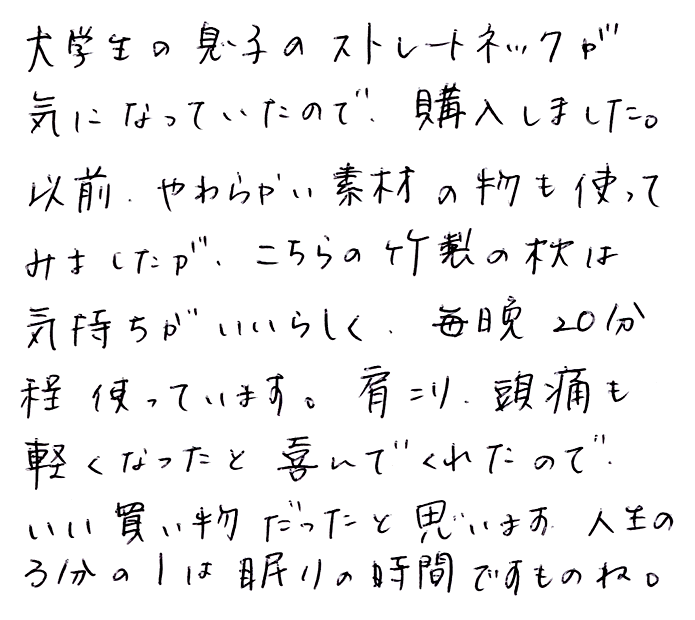 大学生の息子のストレートネックが
気になっていたので、購入しました。
以前、やわらかい素材の物も使って
みましたが、こちらの竹製の枕は
気持ちがいいらしく、毎晩20分
程使っています。肩こり、頭痛も
軽くなったと喜んでくれたので、
いい買い物だったと思います。人生の
3分の1は眠りの時間ですものね。